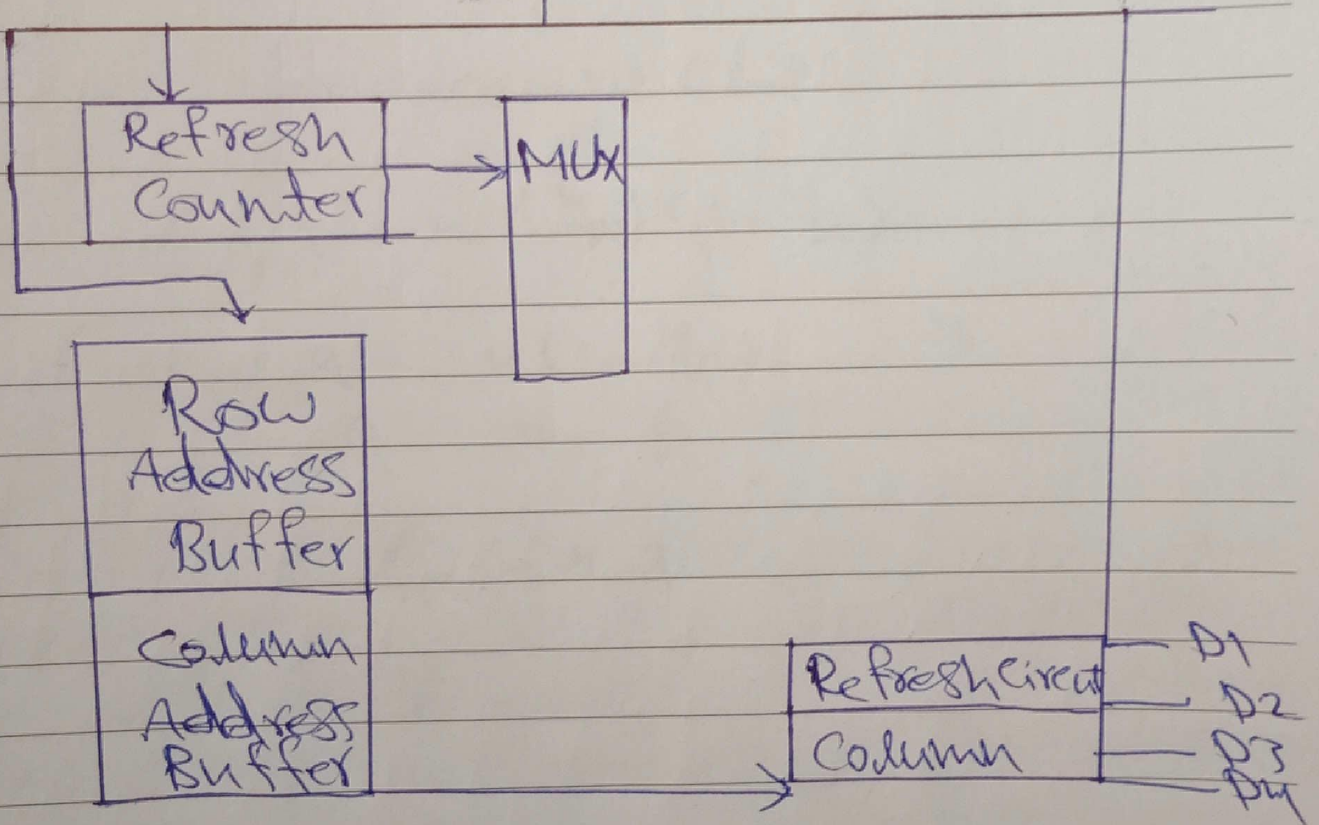 Refresh
Counter
MUX
Row
Address
Buffer
Column
Address
Buffer
Refresh Circut
Column
D1
D2
D3
D4